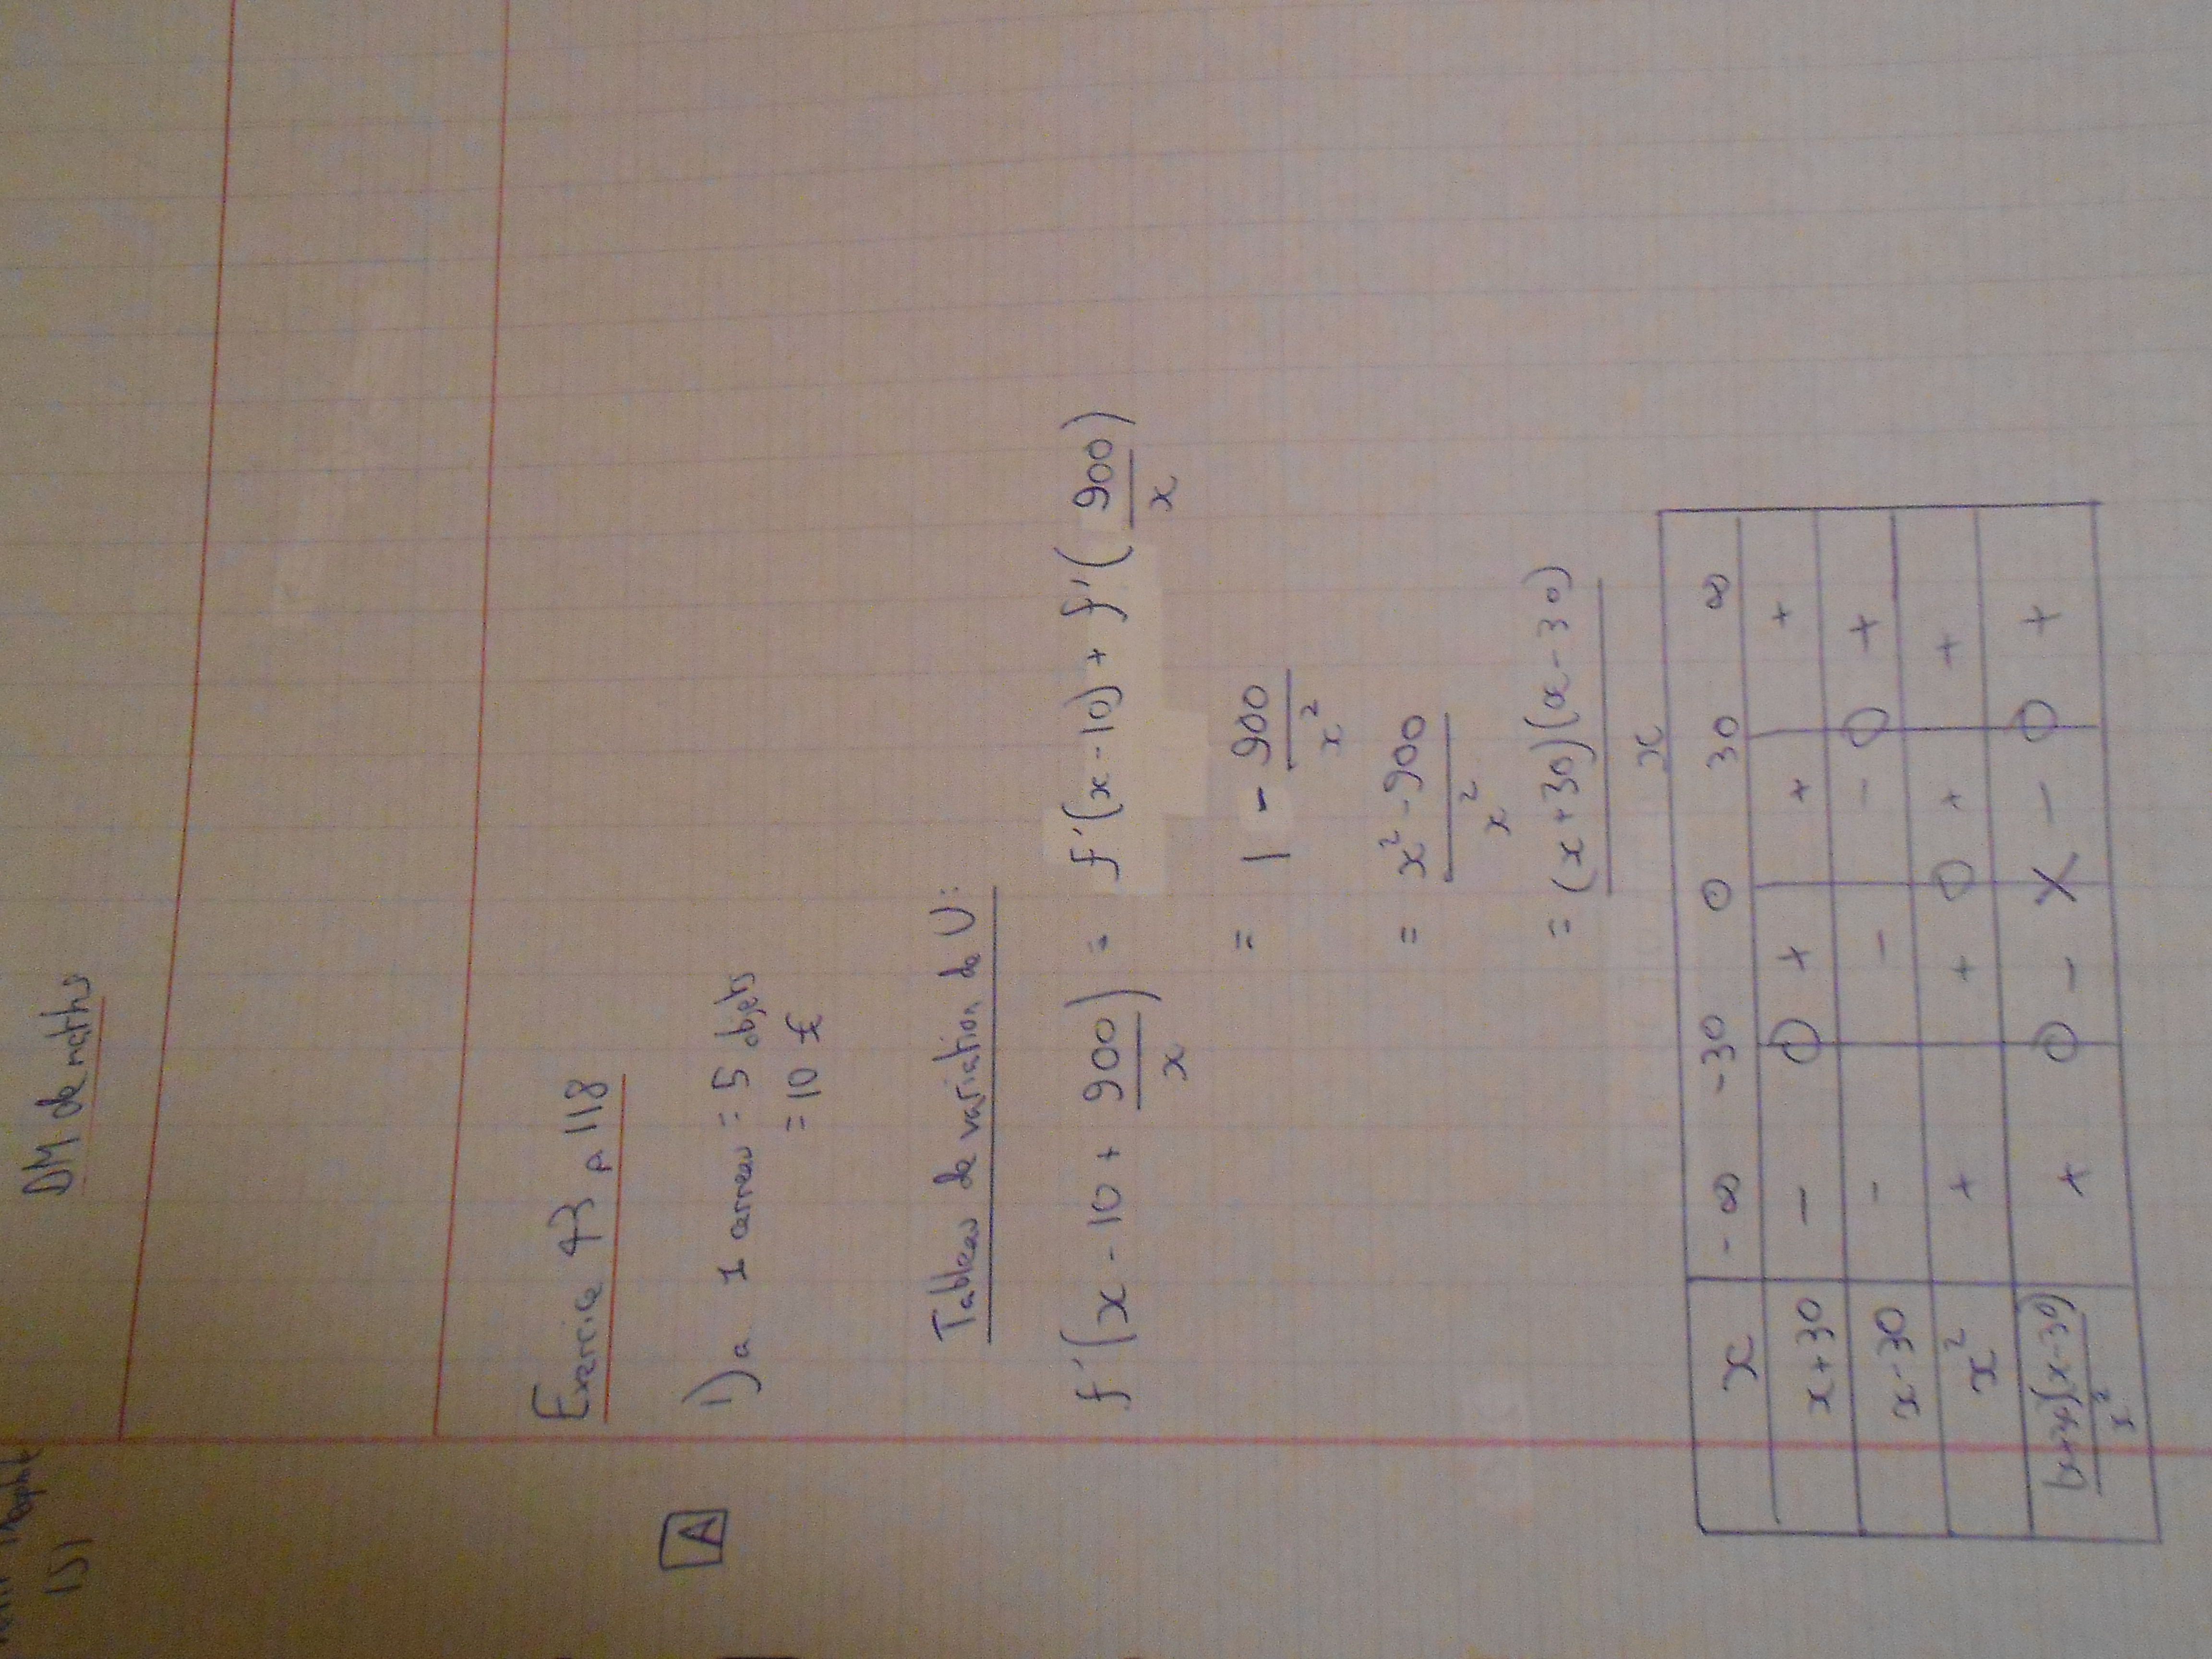 1S1
DM de maths
Exercice 43 p 118
A
1) a 1 carreau = 5 objets
= 10 £
Tableau de variation de U:
f'(x - 10 + 900/x) = f'(x - 10) + f'(900/x)
= 1 - 900/x²
= x² - 900/x²
= (x+30)(x-30)/x
x -∞ -30 0 30 ∞
x+30 - 0 + + +
x-30 - - - 0 +
x² + + 0 + +
(x+30)(x-30)/x² + 0 - X - 0 +